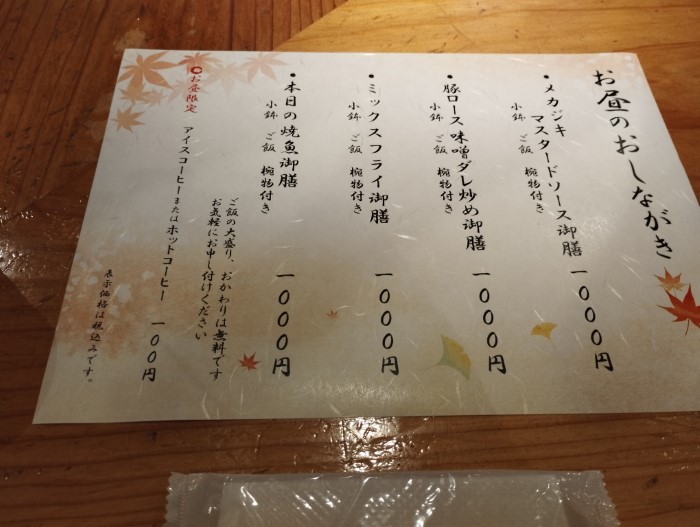 お昼のおしながき
・メカジキ
マスタードソース御膳 一000円
小鉢 ご飯 椀物付き
・豚ロース味噌ダレ炒め御膳 一000円
小鉢 ご飯 椀物付き
・ミックスフライ御膳 一000円
小鉢 ご飯 椀物付き
・本日の焼魚御膳 一000円
小鉢 ご飯 椀物付き
ご飯の大盛り、おかわりは無料です
お気軽にお申し付けください
○お昼限定
アイスコーヒーまたはホットコーヒー 一00円
表示価格は税込みです。